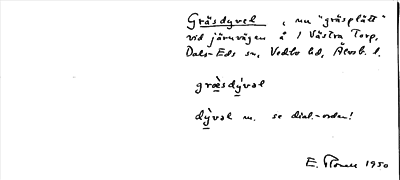 Gräsdyvel, nu "gräsplätt"
vid järnvägen å 1 Västra Torp,
Dals-Eds sn, Vedbo hd, Älvsb. l.
græ̀sdy̌vəl
dy̌vəl m. se dial.-orden!
E. 1950